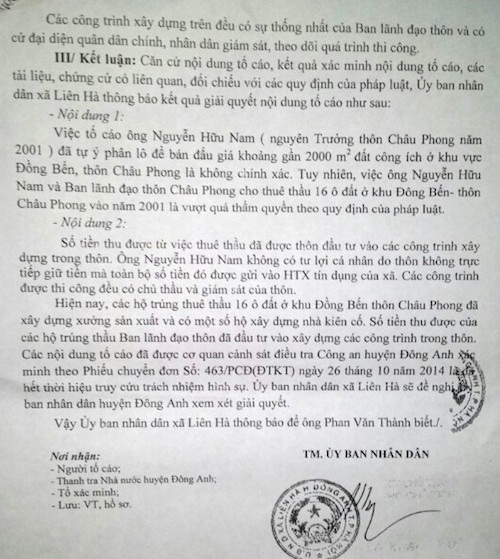 Các công trình xây dựng trên đều có sự thống nhất của Ban lãnh đạo thôn và có
cử đại diện quân dân chính, nhân dân giám sát, theo dõi quá trình thi công.
III/ Kết luận: Căn cứ nội dung tố cáo, kết quả xác minh nội dung tố cáo, các
tài liệu, chứng cứ có liên quan, đối chiếu với các quy định của pháp luật, Ủy ban nhân
dân xã Liên Hà thông báo kết quả giải quyết nội dung tố cáo như sau:
- Nội dung 1:
Việc tố cáo ông Nguyễn Hữu Nam ( nguyên Trưởng thôn Châu Phong năm
2001 ) đã tự ý phân lô để bán đấu giá khoảng gần 2000 m² đất công ích ở khu vực
Đồng Bến, thôn Châu Phong là không chính xác. Tuy nhiên, việc ông Nguyễn Hữu
Nam và Ban lãnh đạo thôn Châu Phong cho thuê thầu 16 ô đất ở khu Đông Bến- thôn
Châu Phong vào năm 2001 là vượt quá thẩm quyền theo quy định của pháp luật.
- Nội dung 2:
Số tiền thu được từ việc thuê thầu đã được thôn đầu tư vào các công trình xây
dựng trong thôn. Ông Nguyễn Hữu Nam không có tư lợi cá nhân do thôn không trực
tiếp giữ tiền mà toàn bộ số tiền đó được gửi vào HTX tín dụng của xã. Các công trình
được thi công đều có chủ thầu và giám sát của thôn.
Hiện nay, các hộ trúng thuê thầu 16 ô đất ở khu Đồng Bến thôn Châu Phong đã
xây dựng xưởng sản xuất và có một số hộ xây dựng nhà kiên cố. Số tiền thu được của
các hộ trúng thầu Ban lãnh đạo thôn đã đầu tư vào xây dựng các công trình trong thôn.
Các nội dung tố cáo đã được cơ quan cảnh sát điều tra Công an huyện Đông Anh xác
minh theo Phiếu chuyển đơn Số: 463/PCĐ(ĐTKT) ngày 26 tháng 10 năm 2014 là
hết thời hiệu truy cứu trách nhiệm hình sự. Ủy ban nhân dân xã Liên Hà sẽ đề nghị
ban nhân dân huyện Đông Anh xem xét giải quyết.
Vậy Ủy ban nhân dân xã Liên Hà thông báo để ông Phan Văn Thành biết./.
Nơi nhận:
- Người tố cáo;
- Thanh tra Nhà nước huyện Đông Anh;
- Tổ xác minh;
- Lưu: VT, hồ sơ.
TM. ỦY BAN NHÂN DÂN